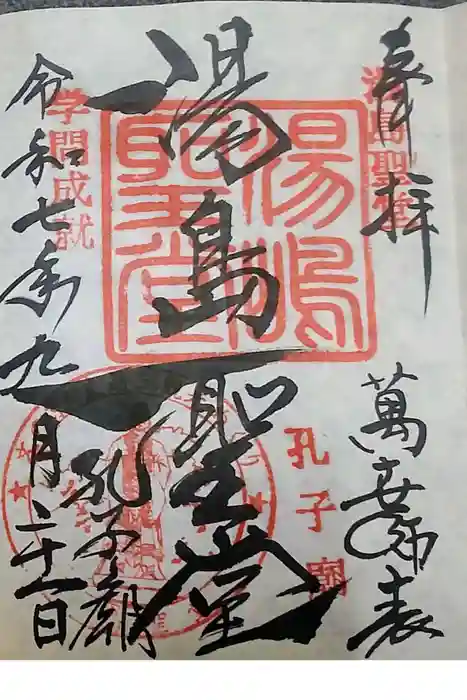 奉拝
湯島聖堂
萬世師表
孔子廟
湯島聖堂
湯島聖堂
孔子廟
学問成就
令和七年九月二十一日